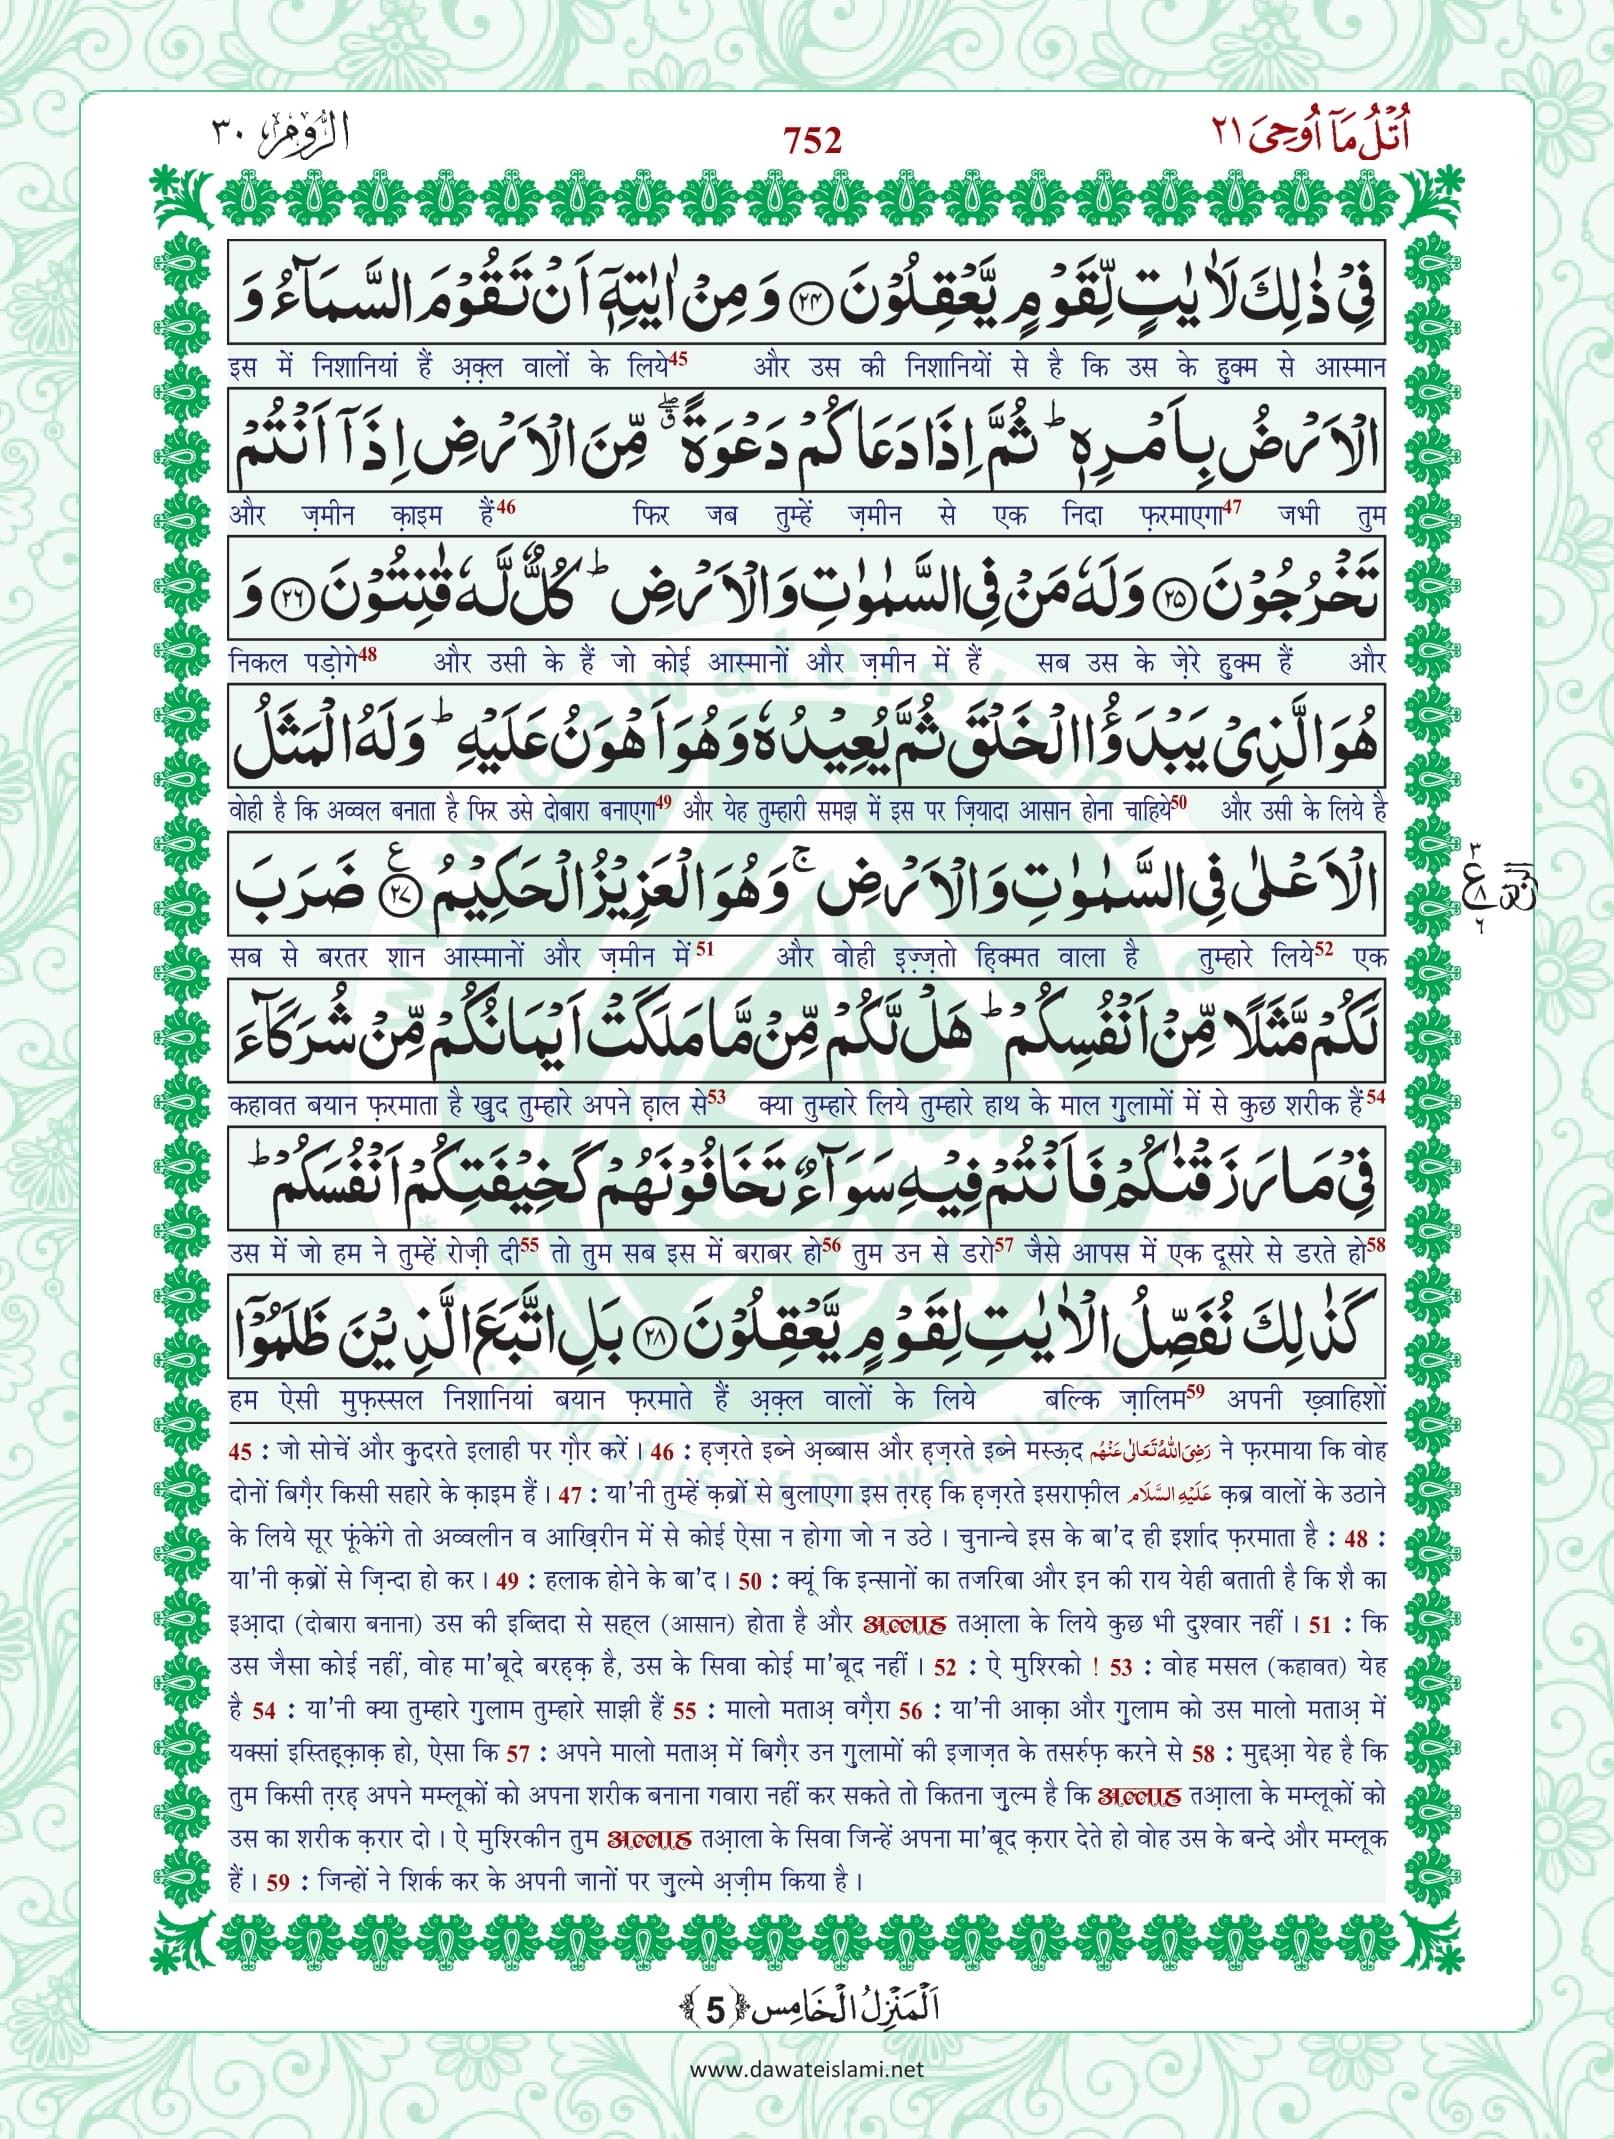 الرُّوْم ٣٠ 752 اُتْلُ مَاۤ اُوْحِیَ ٢١
فِیْ ذٰلِكَ لَاٰیٰتٍ لِّقَوْمٍ یَّعْقِلُوْنَ ﴿۲۴﴾ وَ مِنْ اٰیٰتِهٖۤ اَنْ تَقُوْمَ السَّمَآءُ وَ
इस में निशानियां हैं अ़क़्ल वालों के लिये45 और उस की निशानियों से है कि उस के हुक्म से आस्मान
الْاَرْضُ بِاَمْرِهٖؕ ثُمَّ اِذَا دَعَاكُمْ دَعْوَةً ۖۗ مِّنَ الْاَرْضِ اِذَاۤ اَنْتُمْ
और ज़मीन क़ाइम हैं46 फिर जब तुम्हें ज़मीन से एक निदा फ़रमाएगा47 जभी तुम
تَخْرُجُوْنَ ﴿۲۵﴾ وَلَهٗ مَنْ فِی السَّمٰوٰتِ وَالْاَرْضِؕ كُلٌّ لَّهٗ قٰنِتُوْنَ ﴿۲۶﴾ وَ
निकल पड़ोगे48 और उसी के हैं जो कोई आस्मानों और ज़मीन में हैं सब उस के ज़ेरे हुक्म हैं और
هُوَ الَّذِیْ یَبْدَؤُا الْخَلْقَ ثُمَّ یُعِیْدُهٗ وَهُوَ اَهْوَنُ عَلَیْهِؕ وَلَهُ الْمَثَلُ
वोही है कि अव्वल बनाता है फिर उसे दोबारा बनाएगा49 और येह तुम्हारी समझ में इस पर ज़ियादा आसान होना चाहिये50 और उसी के लिये है
الْاَعْلٰى فِی السَّمٰوٰتِ وَالْاَرْضِۚ وَهُوَ الْعَزِیْزُ الْحَكِیْمُ ﴿۲۷﴾ع ضَرَبَ
٣ ع ٨ ٦
सब से बरतर शान आस्मानों और ज़मीन में51 और वोही इज़्ज़तो हि़क्मत वाला है तुम्हारे लिये52 एक
لَكُمْ مَّثَلًا مِّنْ اَنْفُسِكُمْؕ هَلْ لَّكُمْ مِّنْ مَّا مَلَكَتْ اَیْمَانُكُمْ مِّنْ شُرَكَآءَ
कहावत बयान फ़रमाता है ख़ुद तुम्हारे अपने ह़ाल से53 क्या तुम्हारे लिये तुम्हारे हाथ के माल ग़ुलामों में से कुछ शरीक हैं54
فِیْ مَا رَزَقْنٰكُمْ فَاَنْتُمْ فِیْهِ سَوَآءٌ تَخَافُوْنَهُمْ كَخِیْفَتِكُمْ اَنْفُسَكُمْؕ
उस में जो हम ने तुम्हें रोज़ी दी55 तो तुम सब इस में बराबर हो56 तुम उन से डरो57 जैसे आपस में एक दूसरे से डरते हो58
كَذٰلِكَ نُفَصِّلُ الْاٰیٰتِ لِقَوْمٍ یَّعْقِلُوْنَ ﴿۲۸﴾ بَلِ اتَّبَعَ الَّذِیْنَ ظَلَمُوْۤا
हम ऐसी मुफ़स्सल निशानियां बयान फ़रमाते हैं अ़क़्ल वालों के लिये बल्कि ज़ालिम59 अपनी ख़्वाहिशों
45 : जो सोचें और क़ुदरते इलाही पर ग़ौर करें । 46 : ह़ज़रते इब्ने अ़ब्बास और ह़ज़रते इब्ने मस्ऊ़द رَضِیَ اللّٰہُ تَعَالٰی عَنْہُم ने फ़रमाया कि वोह
दोनों बिग़ैर किसी सहारे के क़ाइम हैं । 47 : या'नी तुम्हें क़ब्रों से बुलाएगा इस त़रह़ कि ह़ज़रते इसराफ़ील عَلَیْہِ السَّلَام क़ब्र वालों के उठाने
के लिये सूर फूंकेंगे तो अव्वलीन व आख़िरीन में से कोई ऐसा न होगा जो न उठे । चुनान्चे इस के बा'द ही इर्शाद फ़रमाता है : 48 :
या'नी क़ब्रों से ज़िन्दा हो कर । 49 : हलाक होने के बा'द । 50 : क्यूं कि इन्सानों का तजरिबा और इन की राय येही बताती है कि शै का
इआ़दा (दोबारा बनाना) उस की इब्तिदा से सह्ल (आसान) होता है और अल्लाह तआ़ला के लिये कुछ भी दुश्वार नहीं । 51 : कि
उस जैसा कोई नहीं, वोह मा'बूदे बरह़क़ है, उस के सिवा कोई मा'बूद नहीं । 52 : ऐ मुश्रिको ! 53 : वोह मसल (कहावत) येह
है 54 : या'नी क्या तुम्हारे ग़ुलाम तुम्हारे साझी हैं 55 : मालो मताअ़ वग़ैरा 56 : या'नी आक़ा और ग़ुलाम को उस मालो मताअ़ में
यक्सां इस्तिह़्क़ाक़ हो, ऐसा कि 57 : अपने मालो मताअ़ में बिग़ैर उन ग़ुलामों की इजाज़त के तसर्रुफ़ करने से 58 : मुद्दआ़ येह है कि
तुम किसी त़रह़ अपने मम्लूकों को अपना शरीक बनाना गवारा नहीं कर सकते तो कितना ज़ुल्म है कि अल्लाह तआ़ला के मम्लूकों को
उस का शरीक क़रार दो । ऐ मुश्रिकीन तुम अल्लाह तआ़ला के सिवा जिन्हें अपना मा'बूद क़रार देते हो वोह उस के बन्दे और मम्लूक
हैं । 59 : जिन्हों ने शिर्क कर के अपनी जानों पर ज़ुल्मे अ़ज़ीम किया है ।
اَلْمَنْزِلُ الْخَامِس ﴿5﴾
www.dawateislami.net